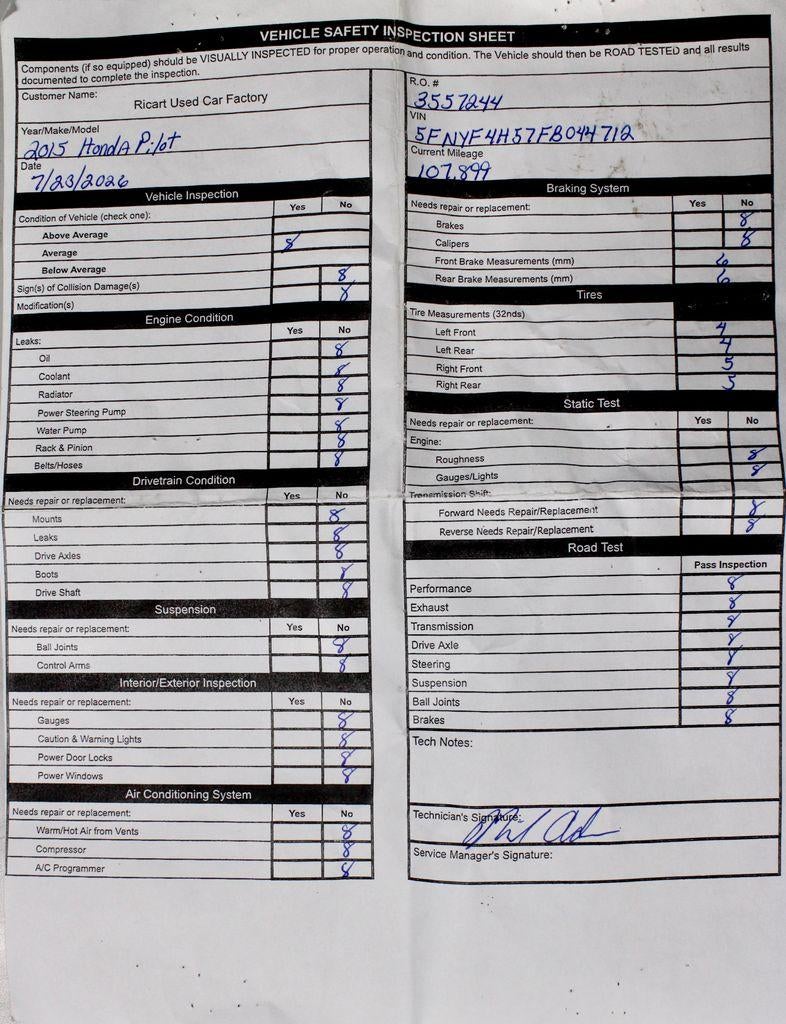 VEHICLE SAFETY INSPECTION SHEET
Components (if so equipped) should be VISUALLY INSPECTED for proper operation and condition. The Vehicle should then be ROAD TESTED and all results
documented to complete the inspection.
Customer Name:
Ricart Used Car Factory
Year/Make/Model
2015 Honda Pilot
Date
7/23/2026
Vehicle Inspection
Condition of Vehicle (check one): Yes No
Above Average
Average 8
Below Average
Sign(s) of Collision Damage(s) 8
Modification(s) 8
Engine Condition
Leaks: Yes No
Oil 8
Coolant 8
Radiator 8
Power Steering Pump 8
Water Pump 8
Rack & Pinion 8
Belts/Hoses 8
Drivetrain Condition
Needs repair or replacement: Yes No
Mounts 8
Leaks 8
Drive Axles 8
Boots 8
Drive Shaft 8
Suspension
Needs repair or replacement: Yes No
Ball Joints 8
Control Arms 8
Interior/Exterior Inspection
Needs repair or replacement: Yes No
Gauges 8
Caution & Warning Lights 8
Power Door Locks 8
Power Windows 8
Air Conditioning System
Needs repair or replacement: Yes No
Warm/Hot Air from Vents 8
Compressor 8
A/C Programmer 8
R.O. #
3557244
VIN
5FNYF4H57FB044712
Current Mileage
107,899
Braking System
Needs repair or replacement: Yes No
Brakes 8
Calipers 8
Front Brake Measurements (mm) 6
Rear Brake Measurements (mm) 6
Tires
Tire Measurements (32nds)
Left Front 4
Left Rear 4
Right Front 5
Right Rear 5
Static Test
Needs repair or replacement: Yes No
Engine:
Roughness 8
Gauges/Lights 8
Transmission Shift:
Forward Needs Repair/Replacement 8
Reverse Needs Repair/Replacement 8
Road Test
Pass Inspection
Performance 8
Exhaust 8
Transmission 8
Drive Axle 8
Steering 8
Suspension 8
Ball Joints 8
Brakes 8
Tech Notes:
Technician's Signature:
Service Manager's Signature: